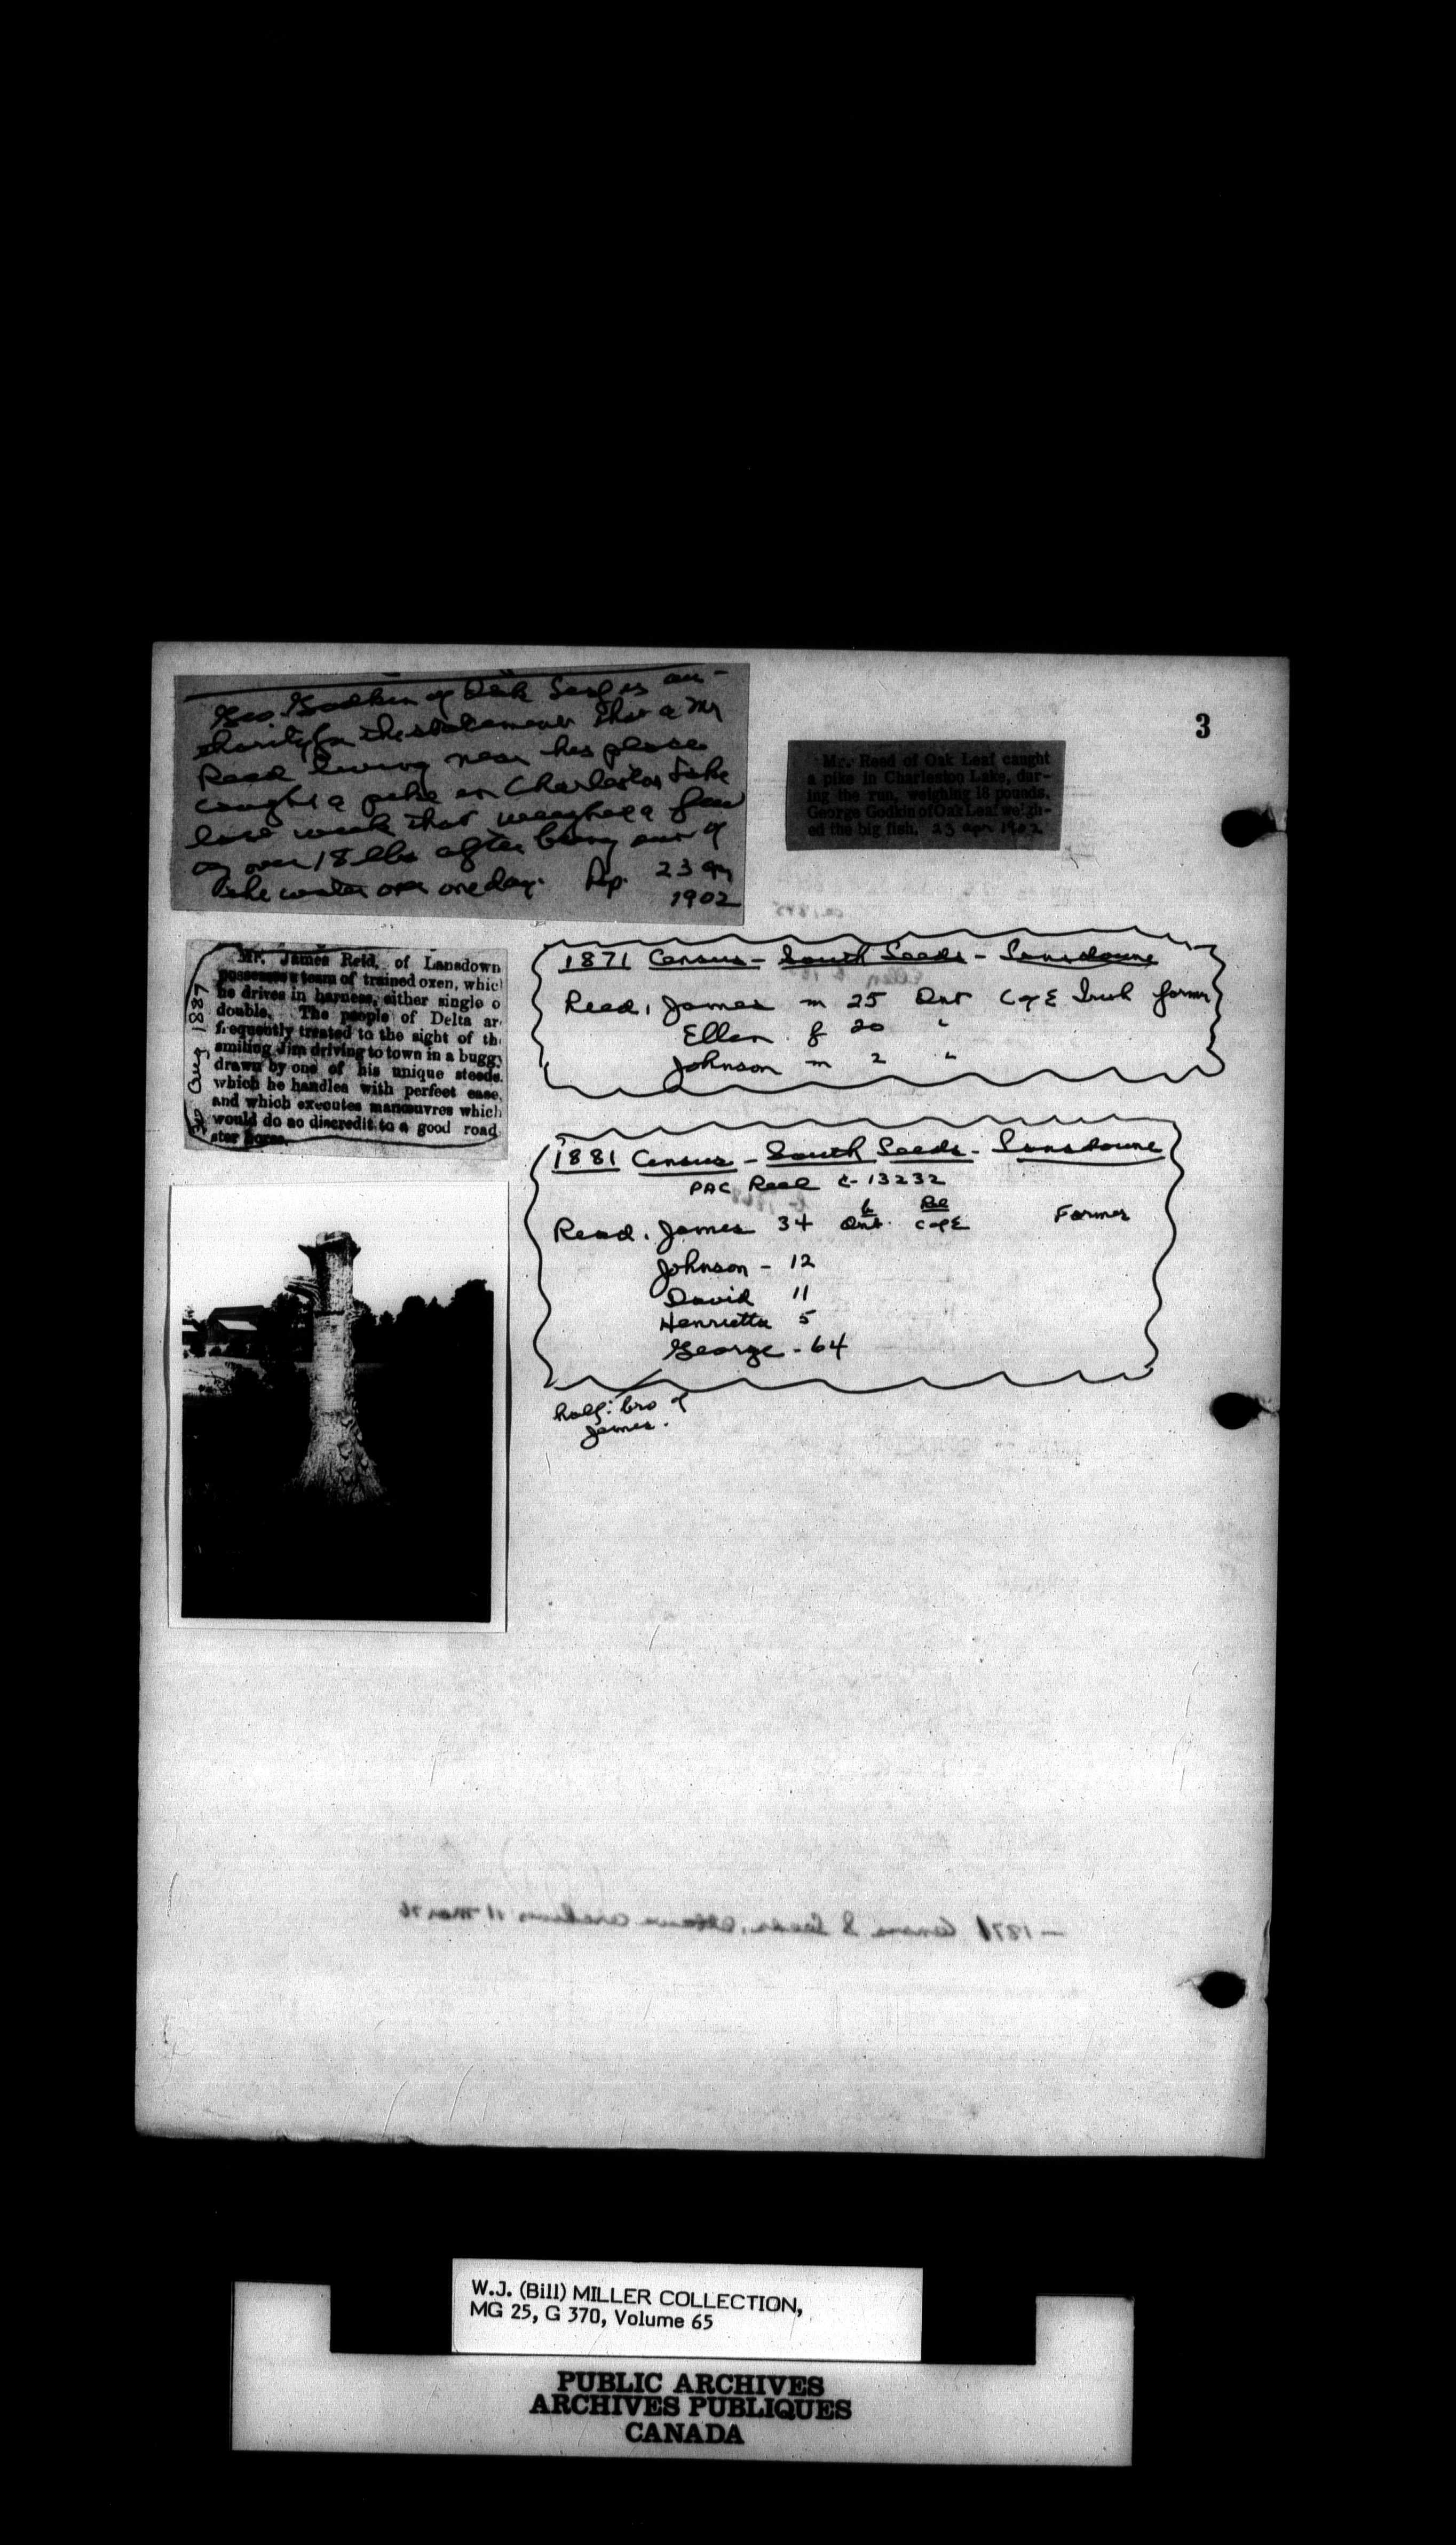 3
Geo. Godkin of Oak Leaf is au-
thority for the statement that a Mr
Read living near his place
caught a pike in Charleston Lake
last week that weighed a few
oz over 18 lbs after being out of
the water over one day. Rep. 23 ap
1902
Mr. Reed of Oak Leaf caught
a pike in Charleston Lake, dur-
ing the run, weighing 18 pounds.
George Godkin of Oak Leaf weigh-
ed the big fish. 23 apr 1902
Mr. James Reid, of Lansdown
possesses a team of trained oxen, whicl
he drives in harness, either single o
double. The people of Delta ar
frequently treated to the sight of th
smiling Jim driving to town in a buggy
drawn by one of his unique steeds,
which he handles with perfect ease,
and which executes manœuvres which
would do no discredit to a good road
ster horse.
Aug 1887
1871 Census - South Leeds - Lansdowne
Read, James m 25 Ont C of E Irish farmer
Ellen f 20 "
Johnson m 2 "
1881 Census - South Leeds - Lansdowne
PAC Reel C-13232
b Rel
Read, James 34 Ont. C of E Farmer
Johnson - 12
David 11
Henrietta 5
George - 64
half: bro of
James.
- 1871 Census S Leeds, Ottawa archives 11 Mar 76
W.J. (Bill) MILLER COLLECTION,
MG 25, G 370, Volume 65
PUBLIC ARCHIVES
ARCHIVES PUBLIQUES
CANADA